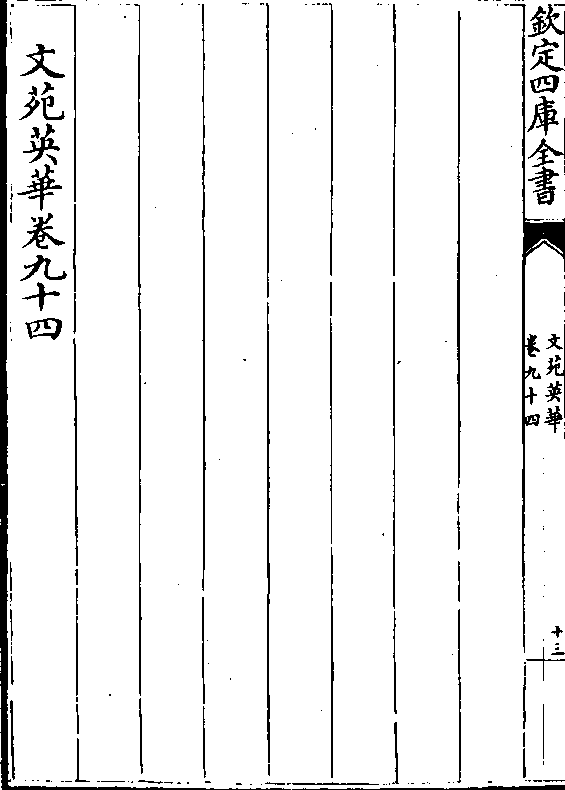 欽定四庫全書
文苑英華
卷九十四
十三
文苑英華卷九十四